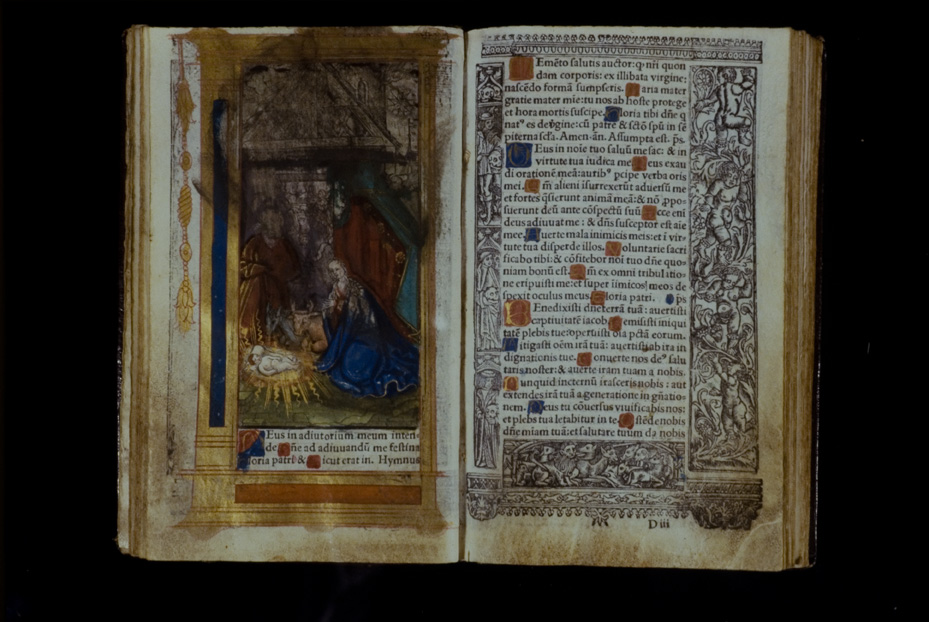 Eus in adiutorium meum inten-
de. ñe ad adiuuandũ me festina
loria patri & icut erat in. Hymnus
Emẽto salutis auctor: q̃ nr̃i quon
dam corporis: ex illibata virgine:
nascẽdo formã sumpseris. aria mater
gratie mater mie: tu nos ab hoste protege
et hora mortis suscipe. loria tibi dñe q
nat⁹ es de v̾gine: cũ patre & sctõ spũ in sẽ
piterna scl̃a. Amen. añ. Assumpta est. p̃s.
Eus in noĩe tuo saluũ me fac: & in
virtute tua iudica me eus exau
di orationẽ meã: aurib⁹ pcipe verba oris
mei. m̃ alieni ĩsurrexerũt aduersũ me
et fortes q̃sierunt animã meã: & nõ ꝓpo-
suerunt deũ ante cõspectũ suũ. cce eni
deus adiuuat me: & dñs susceptor est aĩe
mee. uerte mala inimicis meis: et ĩ vir-
tute tua disperde illos. oluntarie sacri
ficabo tibi: & cõfitebor noĩ tuo dñe quo-
niam bonũ est. m̃ ex omni tribulatio-
ne eripuisti me: et super inimicos meos de
spexit oculus meus. loria patri. ps
Enedixisti dñe terrã tuã: auertisti
captiuitatẽ iacob. emisisti iniqui
tatẽ plebis tue: operuisti oĩa pctã eorum.
itigasti oẽm irã tuã: auertisti ab ira in
dignationis tue. onuerte nos de⁹ salu
taris noster: & auerte iram tuam a nobis.
unquid in eternũ irasceris nobis: aut
extendes irã tuã a generatione in gñatio-
nem. eus tu cõuersus viuificabis nos:
et plebs tua letabitur in te. stẽde nobis
dñe miam tuã: et salutare tuum da nobis
D iii